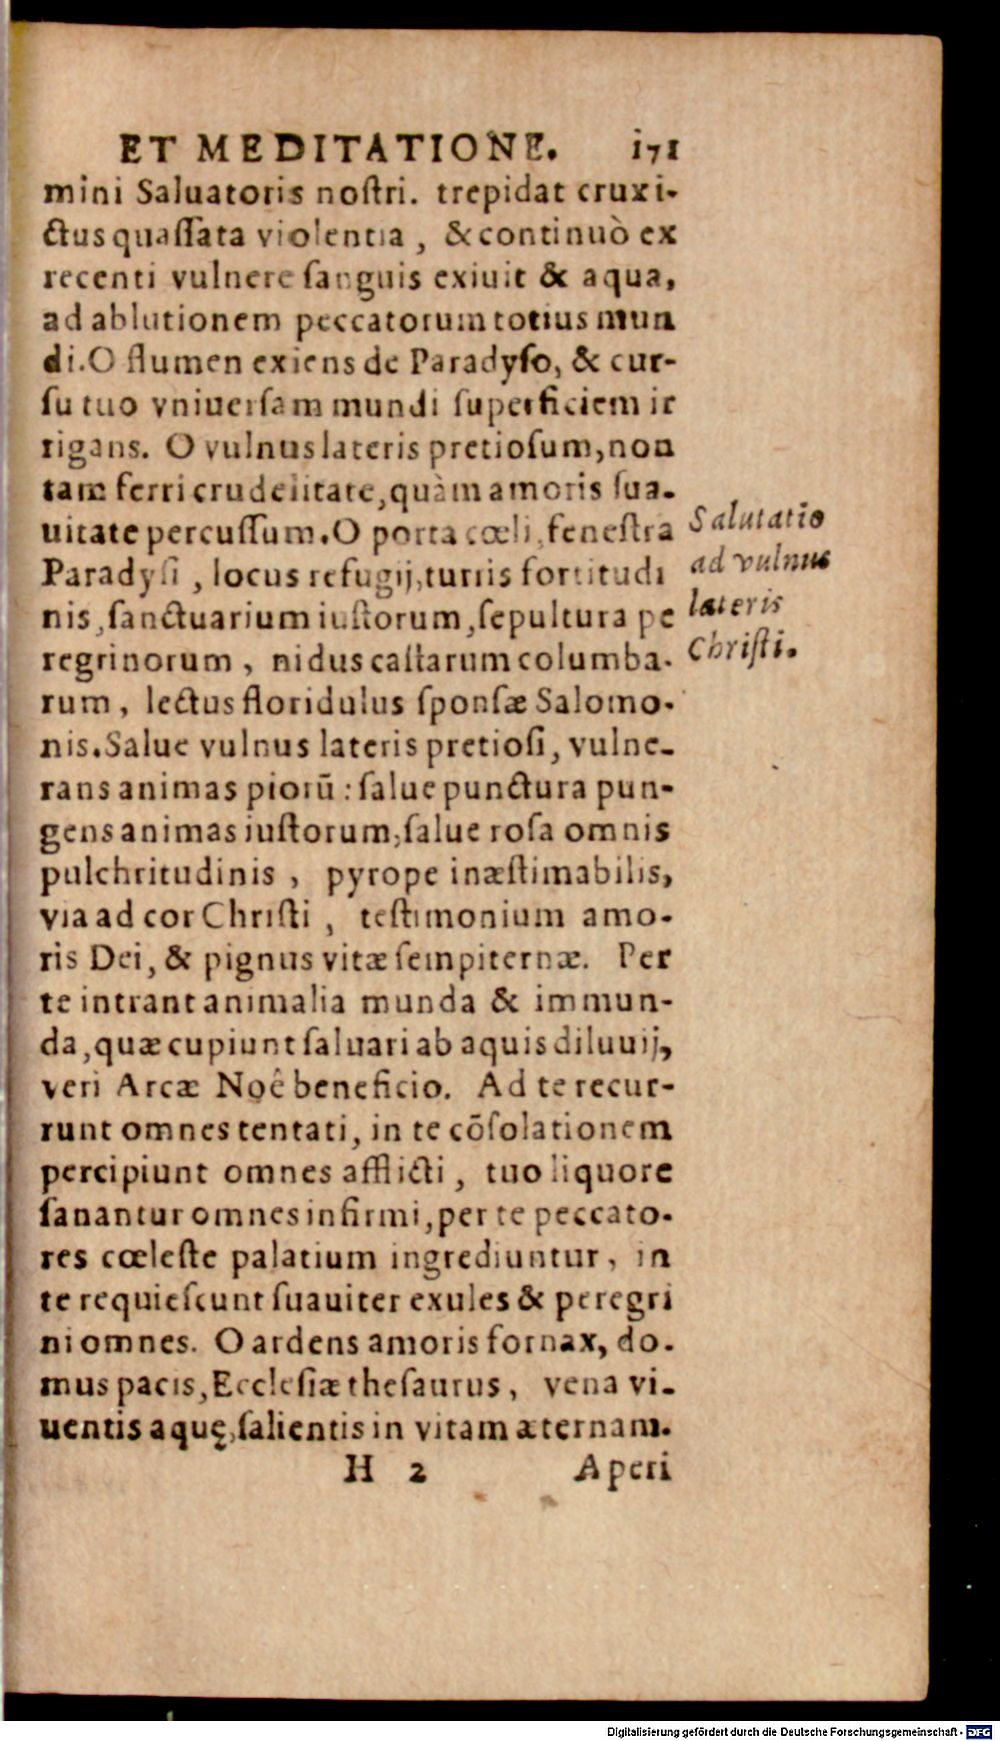 ET MEDITATIONE. 171
mini Saluatoris noſtri. trepidat crux i-
ctus quaſſata violentia, & continuò ex
recenti vulnere ſanguis exiuit & aqua,
ad ablutionem peccatorum totius mun
di. O flumen exiens de Paradyſo, & cur-
ſu tuo vniuerſam mundi ſuperficiem ir
rigans. O vulnus lateris pretioſum, non
tam ferri crudelitate, quàm amoris ſua-
uitate percuſſum. O porta cœli, feneſtra
Paradyſi, locus refugij, turris fortitudi
nis, ſanctuarium iuſtorum, ſepultura pe
regrinorum, nidus caſtarum columba-
rum, lectus floridulus ſponſæ Salomo-
nis. Salue vulnus lateris pretioſi, vulne-
rans animas piorū: ſalue punctura pun-
gens animas iuſtorum, ſalue roſa omnis
pulchritudinis, pyrope inæſtimabilis,
via ad cor Chriſti, teſtimonium amo-
ris Dei, & pignus vitæ ſempiternæ. Per
te intrant animalia munda & immun-
da, quæ cupiunt ſaluari ab aquis diluuij,
veri Arcæ Noê beneficio. Ad te recur-
runt omnes tentati, in te cōſolationem
percipiunt omnes afflicti, tuo liquore
ſanantur omnes infirmi, per te peccato-
res cœleſte palatium ingrediuntur, in
te requieſcunt ſuauiter exules & peregri
ni omnes. O ardens amoris fornax, do-
mus pacis, Eccleſiæ theſaurus, vena vi-
uentis aquę, ſalientis in vitam æternam.
H 2 Aperi
Salutatio
ad vulnus
lateris
Chriſti.
Digitalisierung gefördert durch die Deutsche Forschungsgemeinschaft - DFG